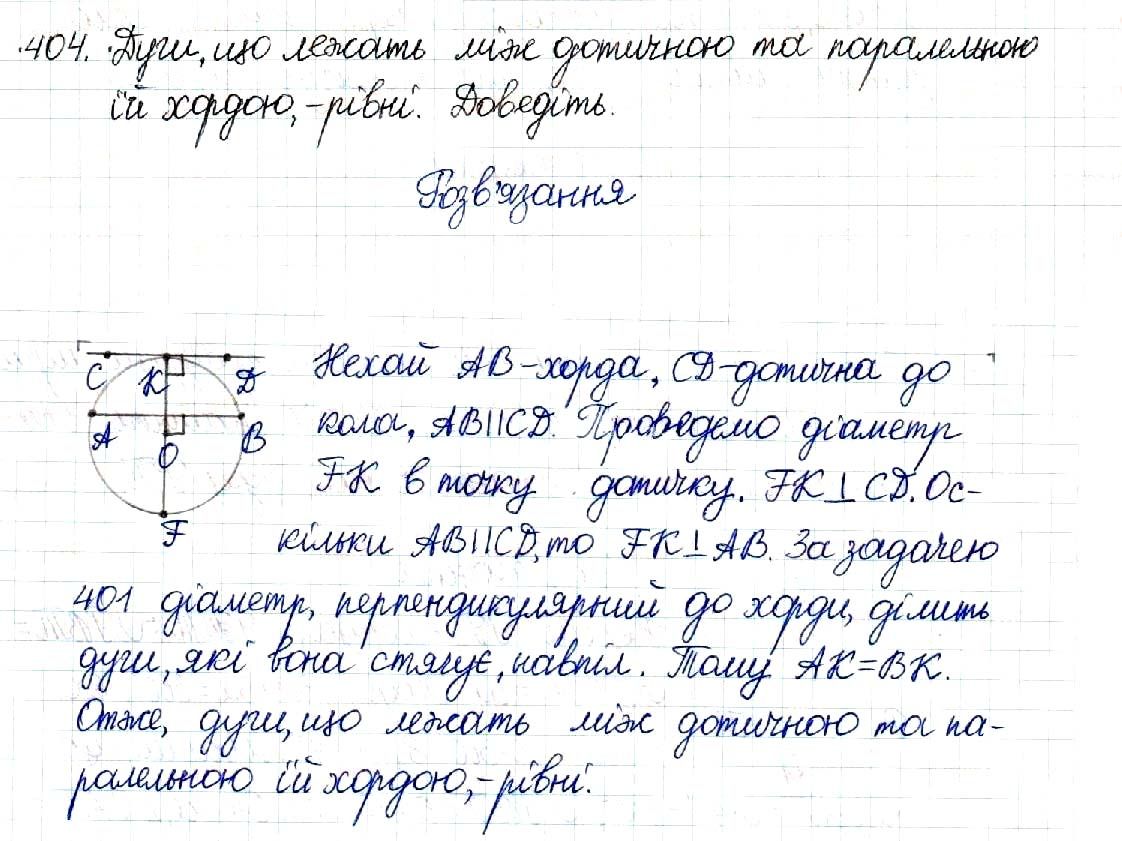 404. Дуги, що лежать між дотичною та паралельною
їй хордою, - рівні. Доведіть.
Розв'язання
C K D
A O B
F
Нехай AB - хорда, CD - дотична до
кола, AB||CD. Проведемо діаметр
FK в точку дотику. FK⊥CD. Ос-
кільки AB||CD, то FK⊥AB. За задачею
401 діаметр, перпендикулярний до хорди, ділить
дуги, які вона стягує, навпіл. Тому AK=BK.
Отже, дуги, що лежать між дотичною та па-
ралельною їй хордою, - рівні.